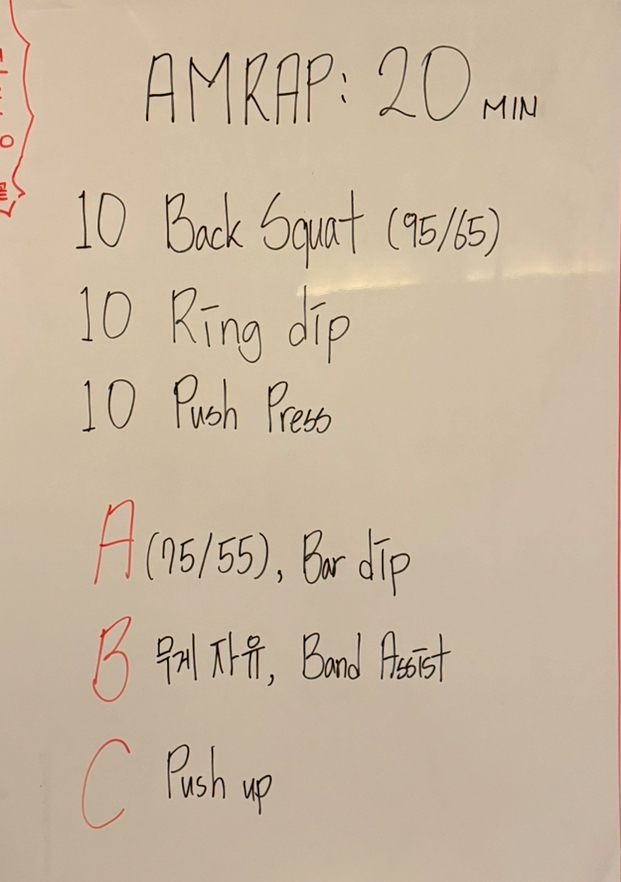 AMRAP: 20 MIN
10 Back Squat (95/65)
10 Ring dip
10 Push Press
A (75/55), Bar dip
B 무게 자유, Band Assist
C Push up